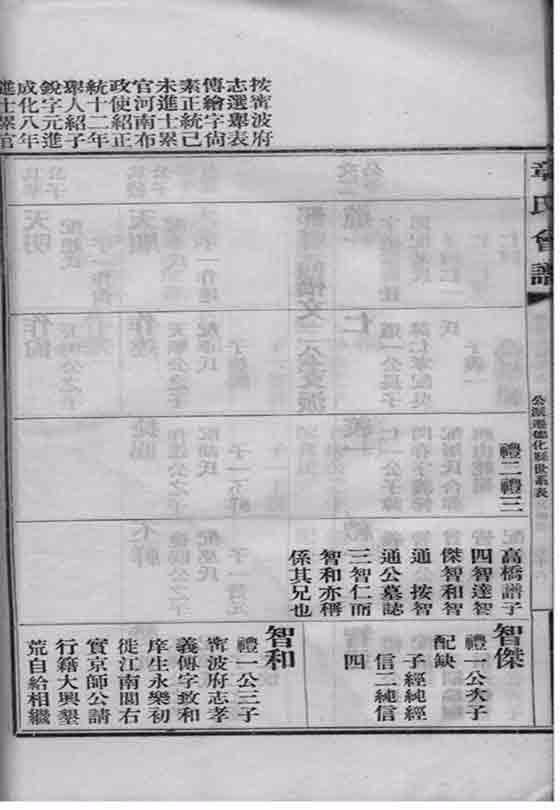 按甯波府
志選舉表
傳繪字尙
素正統己
未進士累
官河南布
政使紹正
統十二年
舉人紹子
銳字元進
成化八年
進士累官
章氏會譜
公派遷德化縣世系表
禮二禮三
高橋譜子
四智達智
傑智和智
通　按智
通公墓誌
三智仁而
智和亦稱
係其兄也
智傑
禮一公次子
配缺
子經純經
信二純信
四
智和
禮一公三子
甯波府志孝
義傳字致和
庠生永樂初
徙江南閭右
實京師公請
行籍大興墾
荒自給相繼